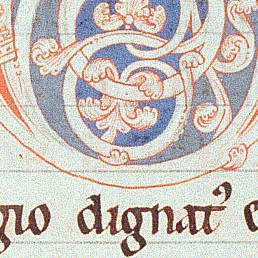 gio dignatꝰ e